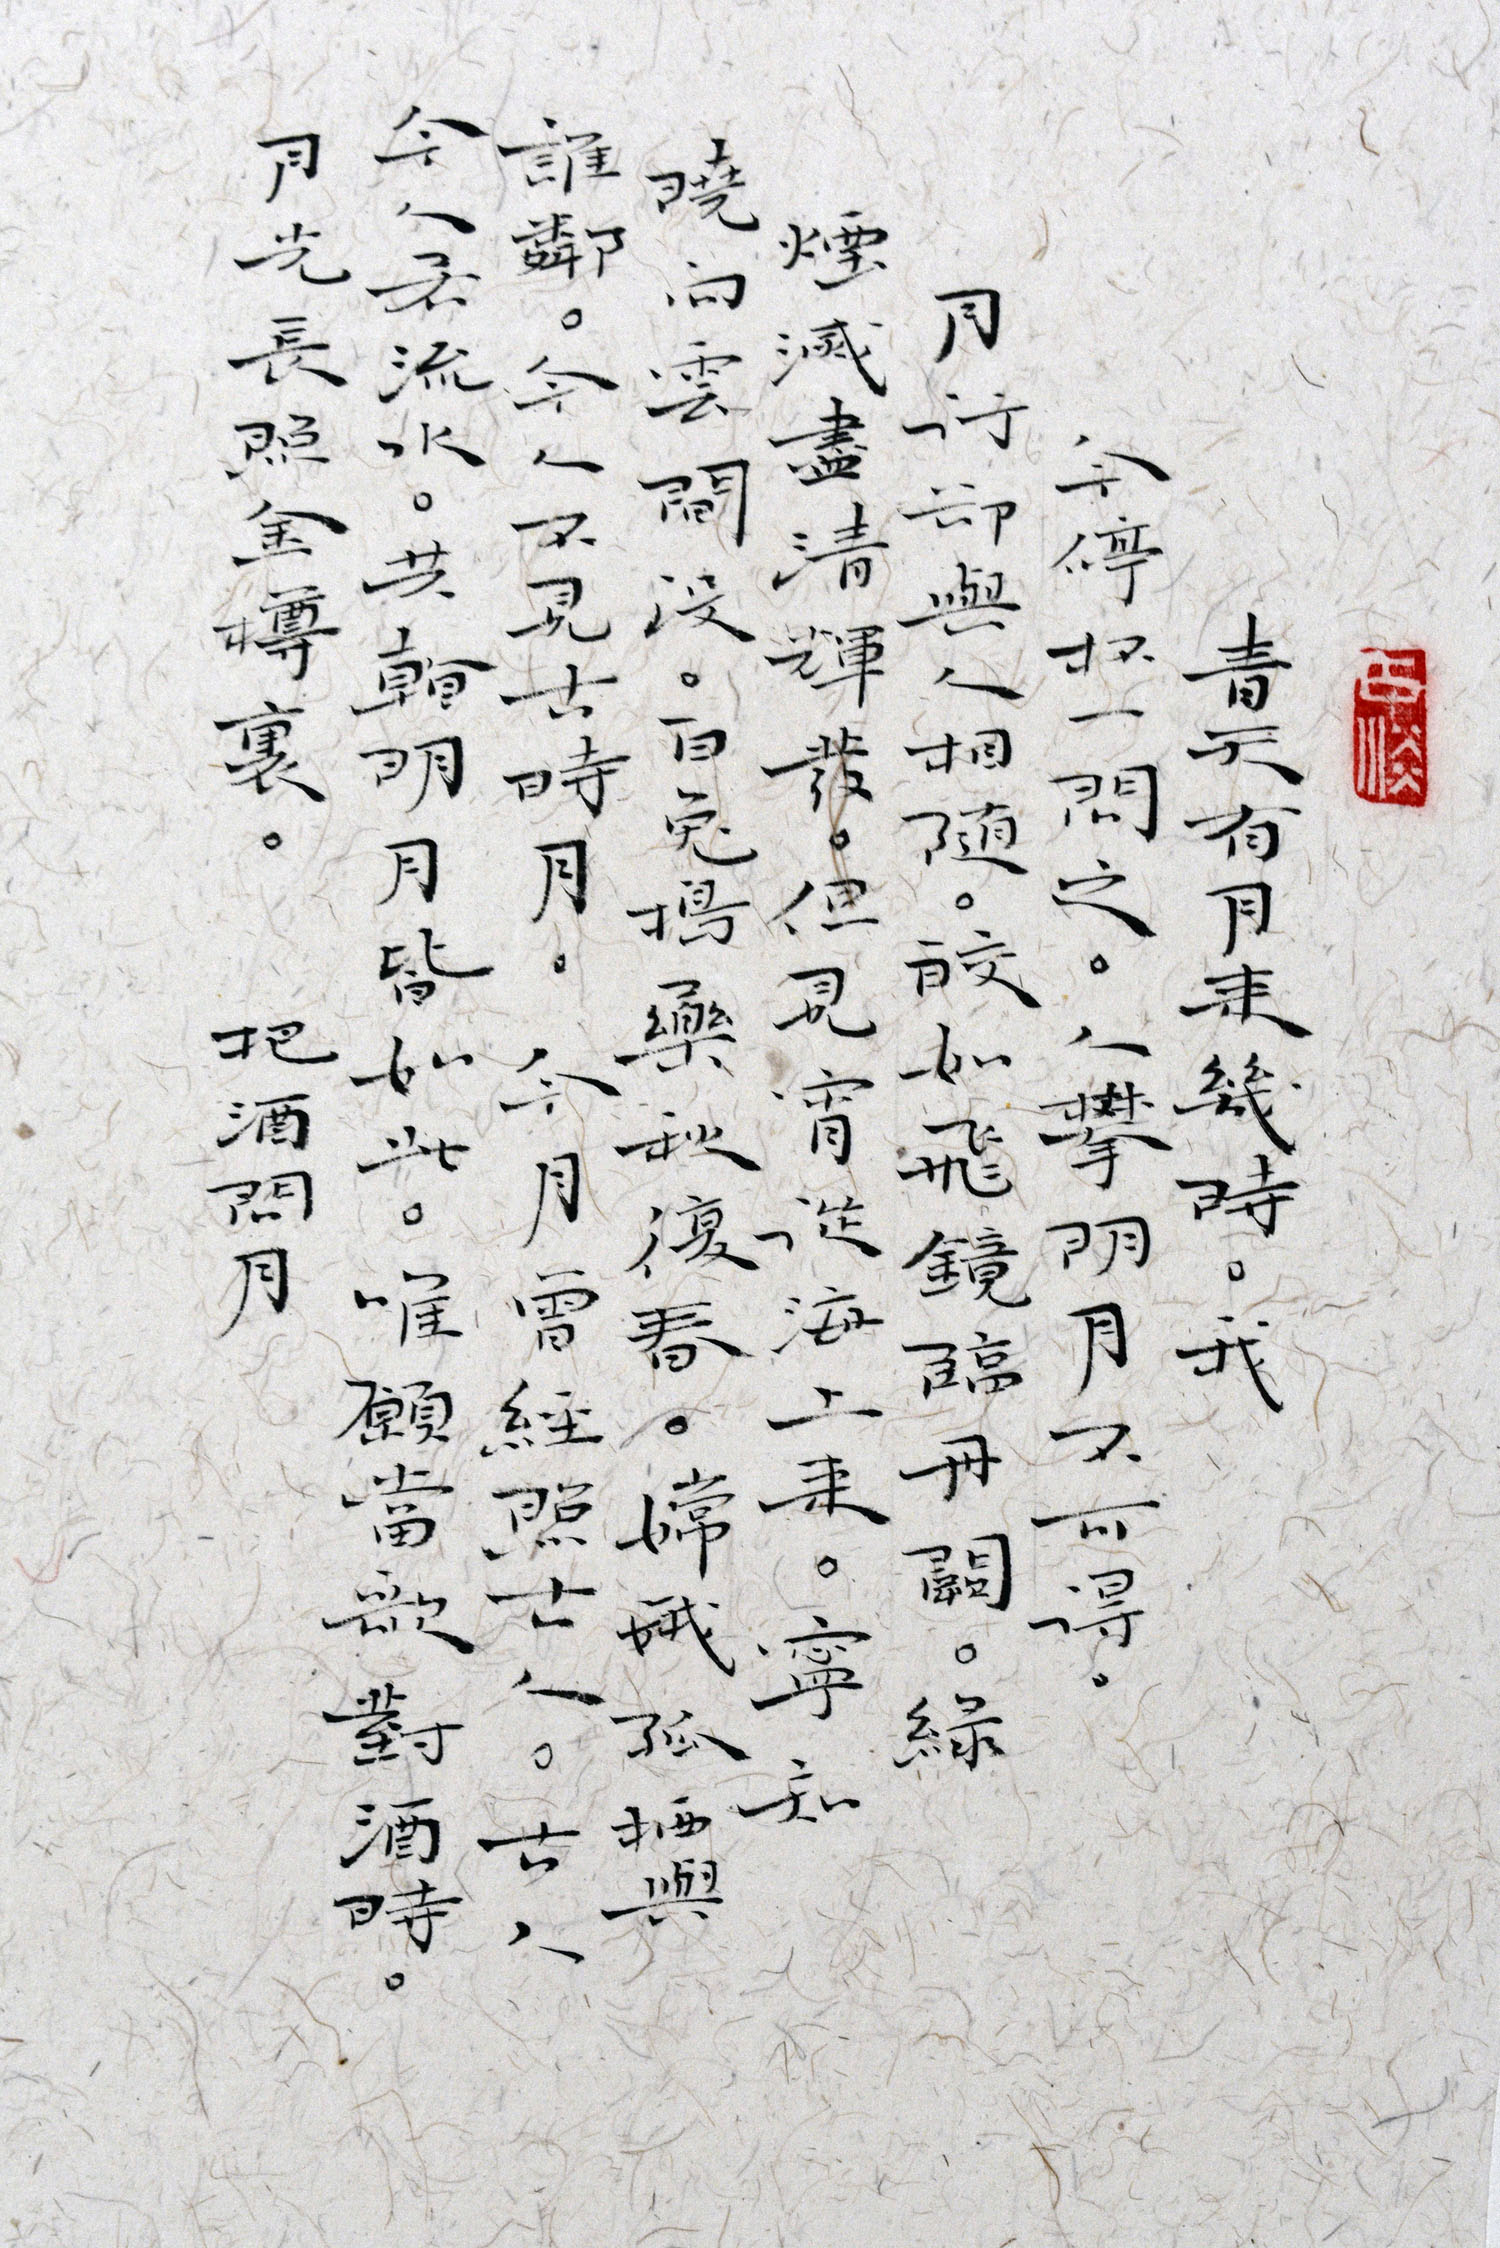 青天有月来幾時。我
今停杯一問之。人攀明月不可得。
月行却與人相隨。皎如飛鏡臨丹闕。緑
煙滅盡清輝發。但見宵從海上来。寧知
曉向雲間没。白兔搗藥秋復春。嫦娥孤栖與
誰鄰。今人不見古時月。今月曾經照古人。古人
今人若流水。共看明月皆如此。唯願當歌對酒時。
月光長照金樽裏。把酒問月